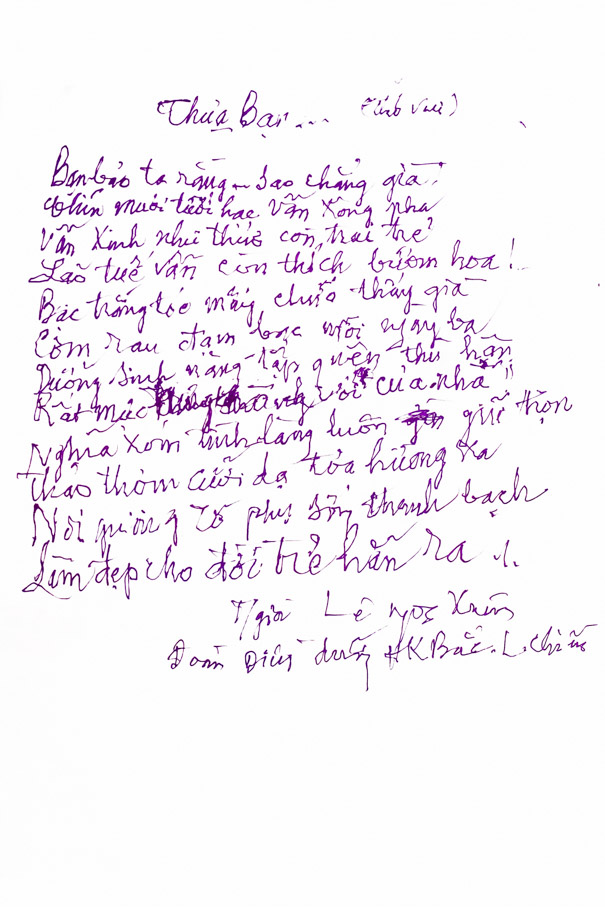 Thưa Bạn... (tính vui)
Bạn bảo ta rằng - sao chẳng già?
Chín mươi tuổi hạc vẫn xông pha
Vẫn xinh như thuở còn trai trẻ
Lão tuế vẫn còn thích bướm hoa!
Bạc trắng tóc mây chửa thấy già
Cơm rau đạm bạc mỗi ngày ba
Dưỡng sinh năng tập quên thù hận
Rất mực với "của nhà"
Nghĩa xóm tình làng luôn giữ trọn
Thảo thơm cưỡi dạ tỏa hương xa
Nơi gương từ phụ sống thanh bạch
Làm đẹp cho đời trẻ hẳn ra ./.
T/giả Lê Ngọc
Đoàn Điều dưỡng HK Bắc.L.